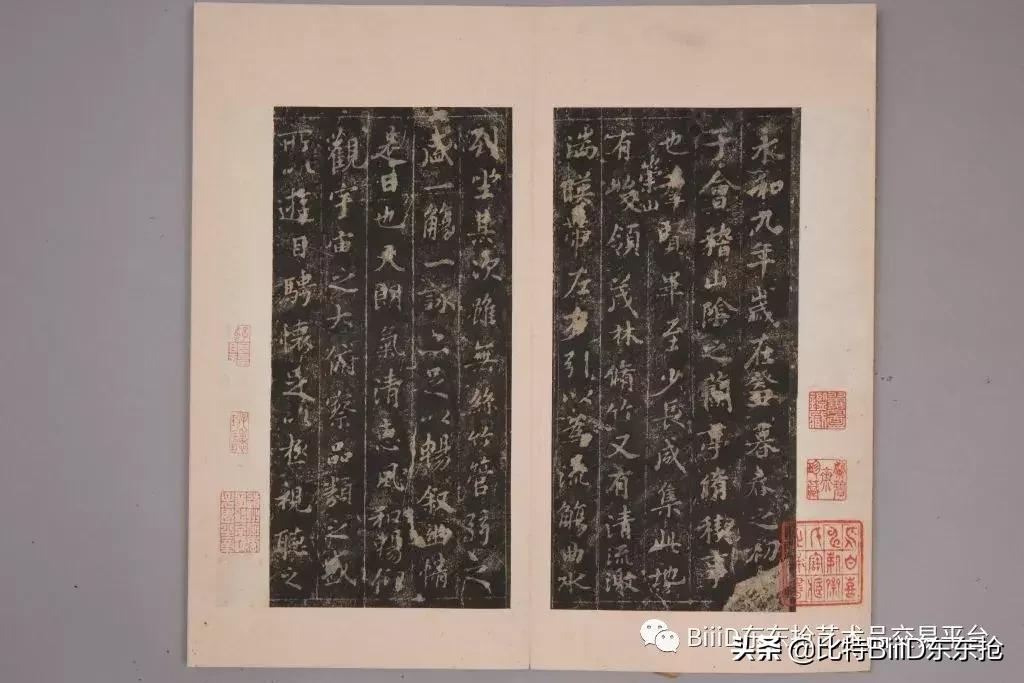 永和九年歲在癸丑暮春之初
于會稽山陰之蘭亭脩稧事
也羣賢畢至少長咸集此地
崇山
有峻領茂林脩竹又有清流激
湍暎帶左右引以為流觴曲水
列坐其次雖無絲竹管弦之
盛一觴一詠亦足以暢敘幽情
是日也天朗氣清惠風和暢仰
觀宇宙之大俯察品類之盛
所以遊目騁懷足以極視聽之
BiiiD东东抢艺术品交易平台
头条 @比特BiiiD东东抢